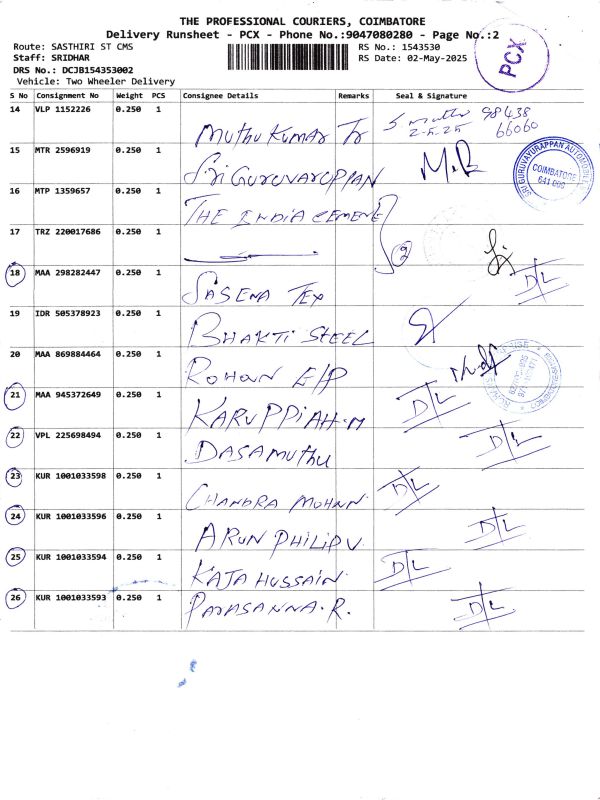 THE PROFESSIONAL COURIERS, COIMBATORE
Delivery Runsheet - PCX - Phone No.:9047080280 - Page No.:2
Route: SASTHIRI ST CMS
RS No.: 1543530
Staff: SRIDHAR
RS Date: 02-May-2025
DRS No.: DCJB154353002
Vehicle: Two Wheeler Delivery
PCX
S No Consignment No Weight PCS Consignee Details Remarks Seal & Signature
14 VLP 1152226 0.250 1 MUTHU KUMAR Tr 98438
2-5-25 66060
15 MTR 2596919 0.250 1 Sri GURUVAYURUPPAN
SRI GURUVAYURAPPAN AUTOMOBILES
COIMBATORE
641 009
16 MTP 1359657 0.250 1 THE INDIA CEMENT
17 TRZ 220017686 0.250 1 2
18 MAA 298282447 0.250 1 SASENA TEX D/L
19 IDR 505378923 0.250 1 BHAKTI STEEL
20 MAA 869884464 0.250 1 ROHOUN E/P
21 MAA 945372649 0.250 1 KARUPPIAH.M D/L
22 VPL 225698494 0.250 1 DASAMUTHU D/L
23 KUR 1001033598 0.250 1 CHANDRA MOHAN D/L
24 KUR 1001033596 0.250 1 ARUN PHILIP V. D/L
25 KUR 1001033594 0.250 1 KAJA HUSSAIN. D/L
26 KUR 1001033593 0.250 1 PARASANNA.R. D/L